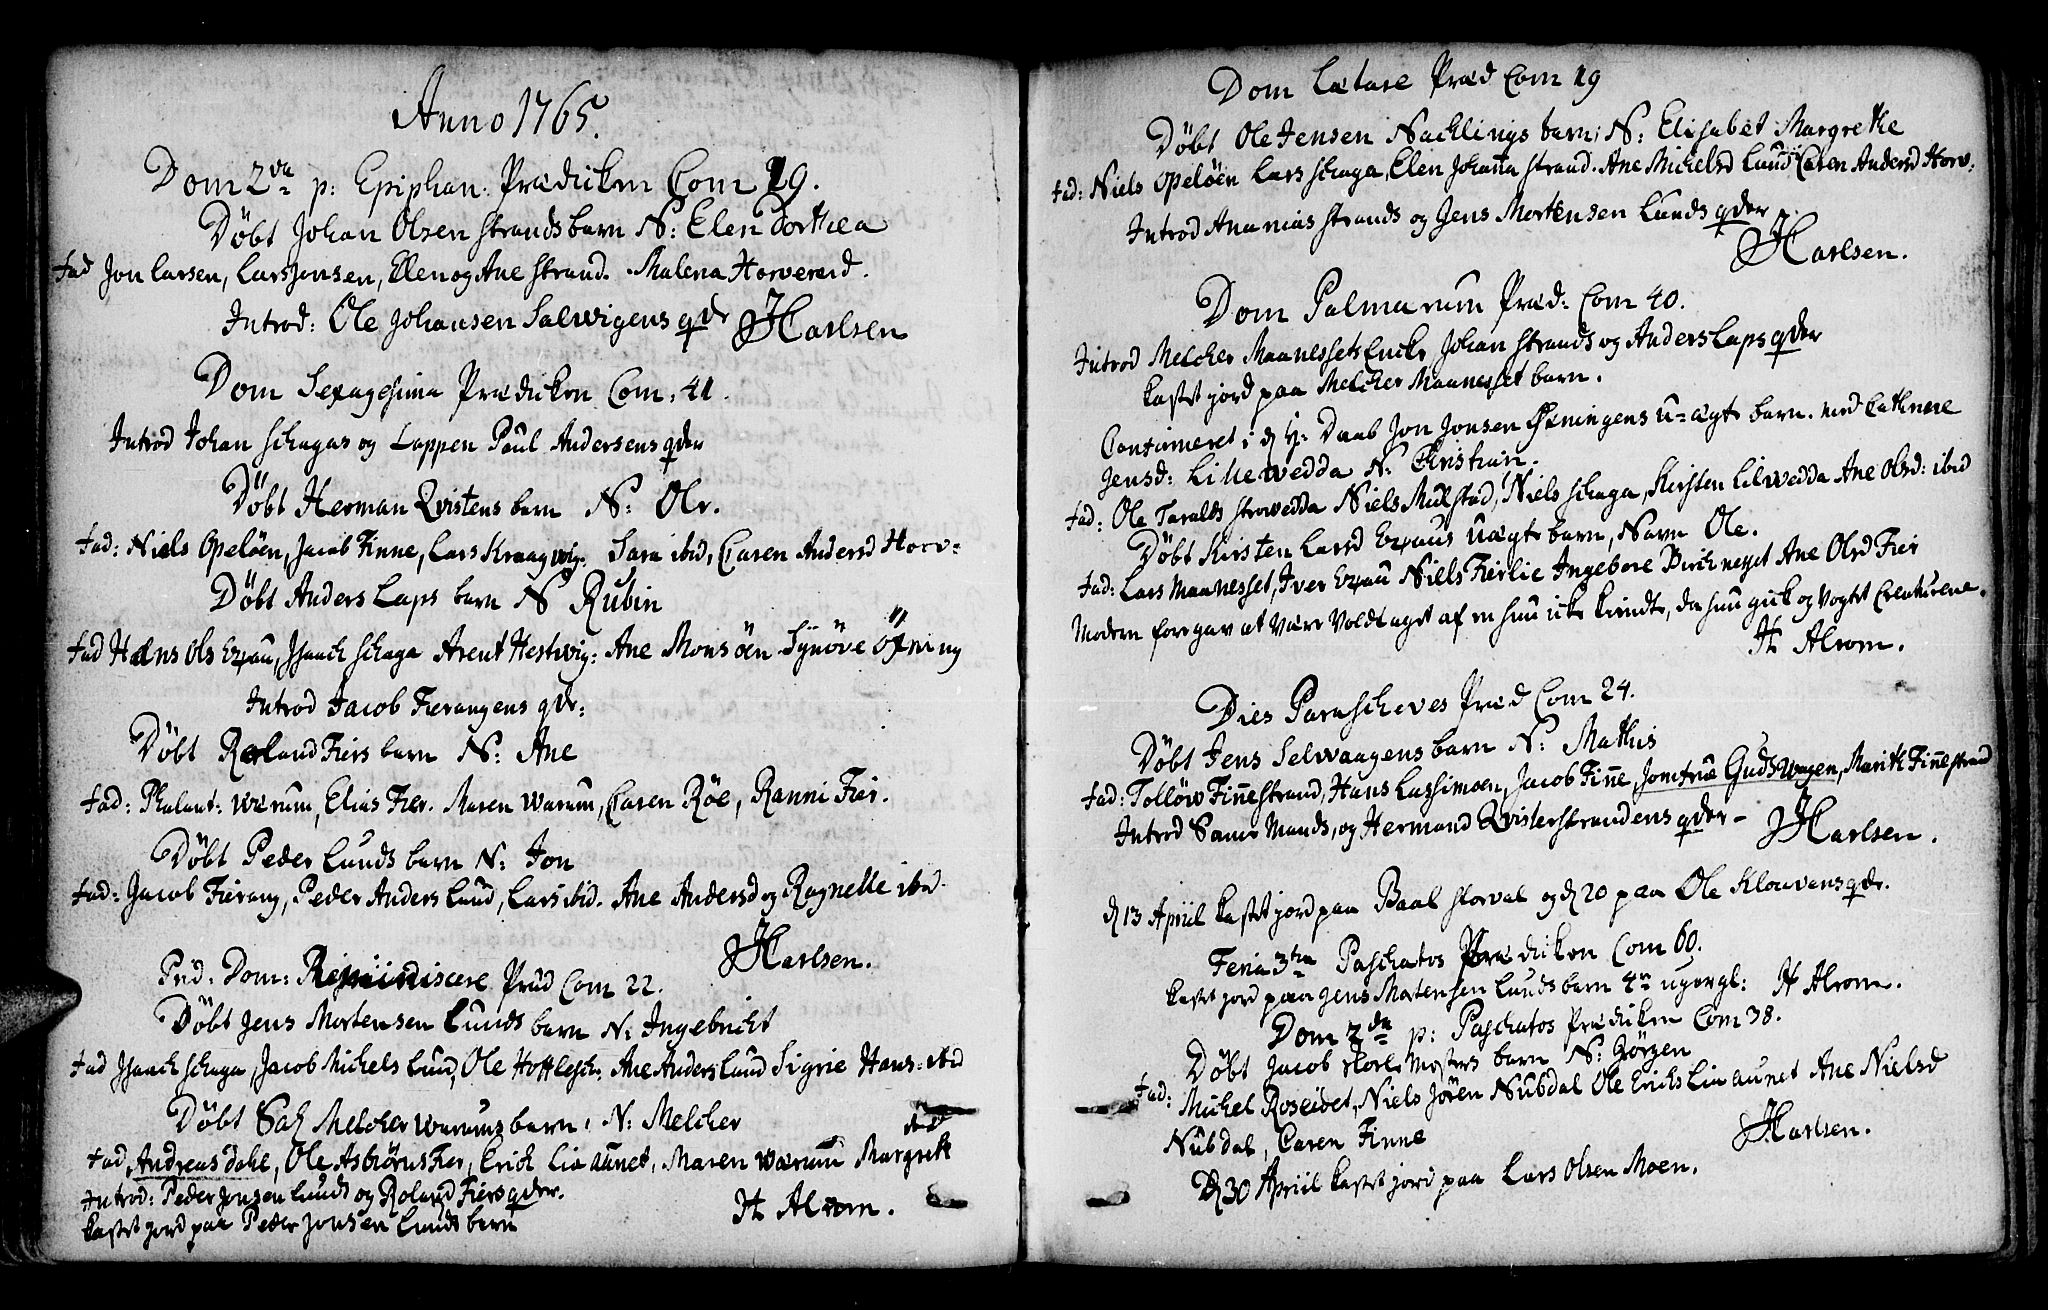 Anno 1765.
Dom 2da p: Epiphan: Prædicken Com 19.
Döbt Johan Olsen Strands barn N: Elen Dorthea
Fad Jon Larsen, Lars Jensen, Elen og Ane Strand. Malena Horverend.
Introd: Ole Johansen Salwigens qdr JHarlsen
Dom Sexagesima Prædicken Com. 41.
Introd Johan Schagas og Lappen Paul Andersens qder
Döbt Herman Qvistens barn N: Ole.
Fad: Niels Opelöen, Jacob Finne, Lars Kraagwig. Sara ibid, Caren Andersd Horv:
Döbt Anders Laps barn N Rubin
Fad Hans Ols Exau, Isaach Schaga Arent Hestwig: Ane Monsöen Synöve Öxning
Introd Jacob Fierangens qdr:
Döbt Roeland Fiers barn N: Ane
Fad: Phalant: Wærum, Elias Fier. Maren Wærum, Caren Röe, Ranni Fier.
Döbt Peder Lunds barn N: Jon
Fad: Jacob Fierang, Peder Anders Lund, Lars ibid. Ane Andersd og Ragnelle ibid.
JHarlsen.
Prid: Dom: Reminiscere Præd Com 22.
Döbt Jens Mortensen Lunds barn N: Ingebricht
Fad Isaach Schaga, Jacob Michels Lund, Ole Hofflesch. Ane Anders Lund Sigrie Hans: ibid
Döbt Sal Melcher Wærums barn, N: Melcher
ibid
Fad, Andreas Dahl, Ole Asbörns Fier, Erich Lia aunet, Maren Wærum Margrete
Introd: Peder Jonsen Lunds og Roland Fiers qder.
Kastet jord paa Peder Jonsen Lunds barn
H Alrom.
Dom Lætare Præd Com 19
Döbt Ole Jensen Nachlings barn: N: Elisabet Margrethe
Fad: Niels Opelöen Lars Schaga, Elen Johana Strand. Ane Michelsd Lund Caren Andersd Horv:
Introd Ananias Strands og Jens Mortensen Lunds qder
JHarlsen.
Dom Palmarum Præd: Com 40.
Introd Melcher Maanessets Encke Johan Strands og Anders Laps qder
Kastet jord paa Melcher Maanesset barn.
Confirmeret i d H: Daab Jon Jonsen Öxningens u=ægte barn. med Cathrine
Jensd: Lillewedda N: Christian.
Fad: Ole Taralds Storwedda Niels Mulstad, Niels Schaga, Kirsten Lilwedda Ane Olsd: ibid
Döbt Kirsten Larsd Exaus Uægte barn, Navn Ole.
Fad: Lars Maanesset, Iver Exau Niels Fierlie Ingebore Birchnesset Ane Olsd Fier
Modern foregav at være Voldtaget af en hun icke kiendte, da hun gick og Vogtet Creaturene.
H Alrom.
Dies Parascheves Præd Com 24.
Döbt Jens Selwaagens barn N: Mathis
Fad: Tollöw Finnestrand, Hans Lassimoen, Jacob Finne, Jomfrue Gudswogen, Marith Finnestrand
Introd Same Mands, og Hermand Qvisterstrandens qder - JHarlsen.
d 13 Apriil kastet jord paa Baal Storval og d 20 paa Ole Klouvens qdr.
Feria 3tia Paschatos Prædicken Com 60.
Kastet jord paa Jens Mortensen Lunds barn 4re uger gl: H Alrom.
Dom 2da p: Paschatos Prædicken Com 38.
Döbt Jacob Morsets barn N: Jörgen
Fad: Michel Roseidet, Niels Jören Nubdal Ole Erichs Lia aunet Ane Nielsd
Nubdal, Caren Finne JHarlsen.
D 30 Apriil kastet jord paa Lars Olsen Moen.